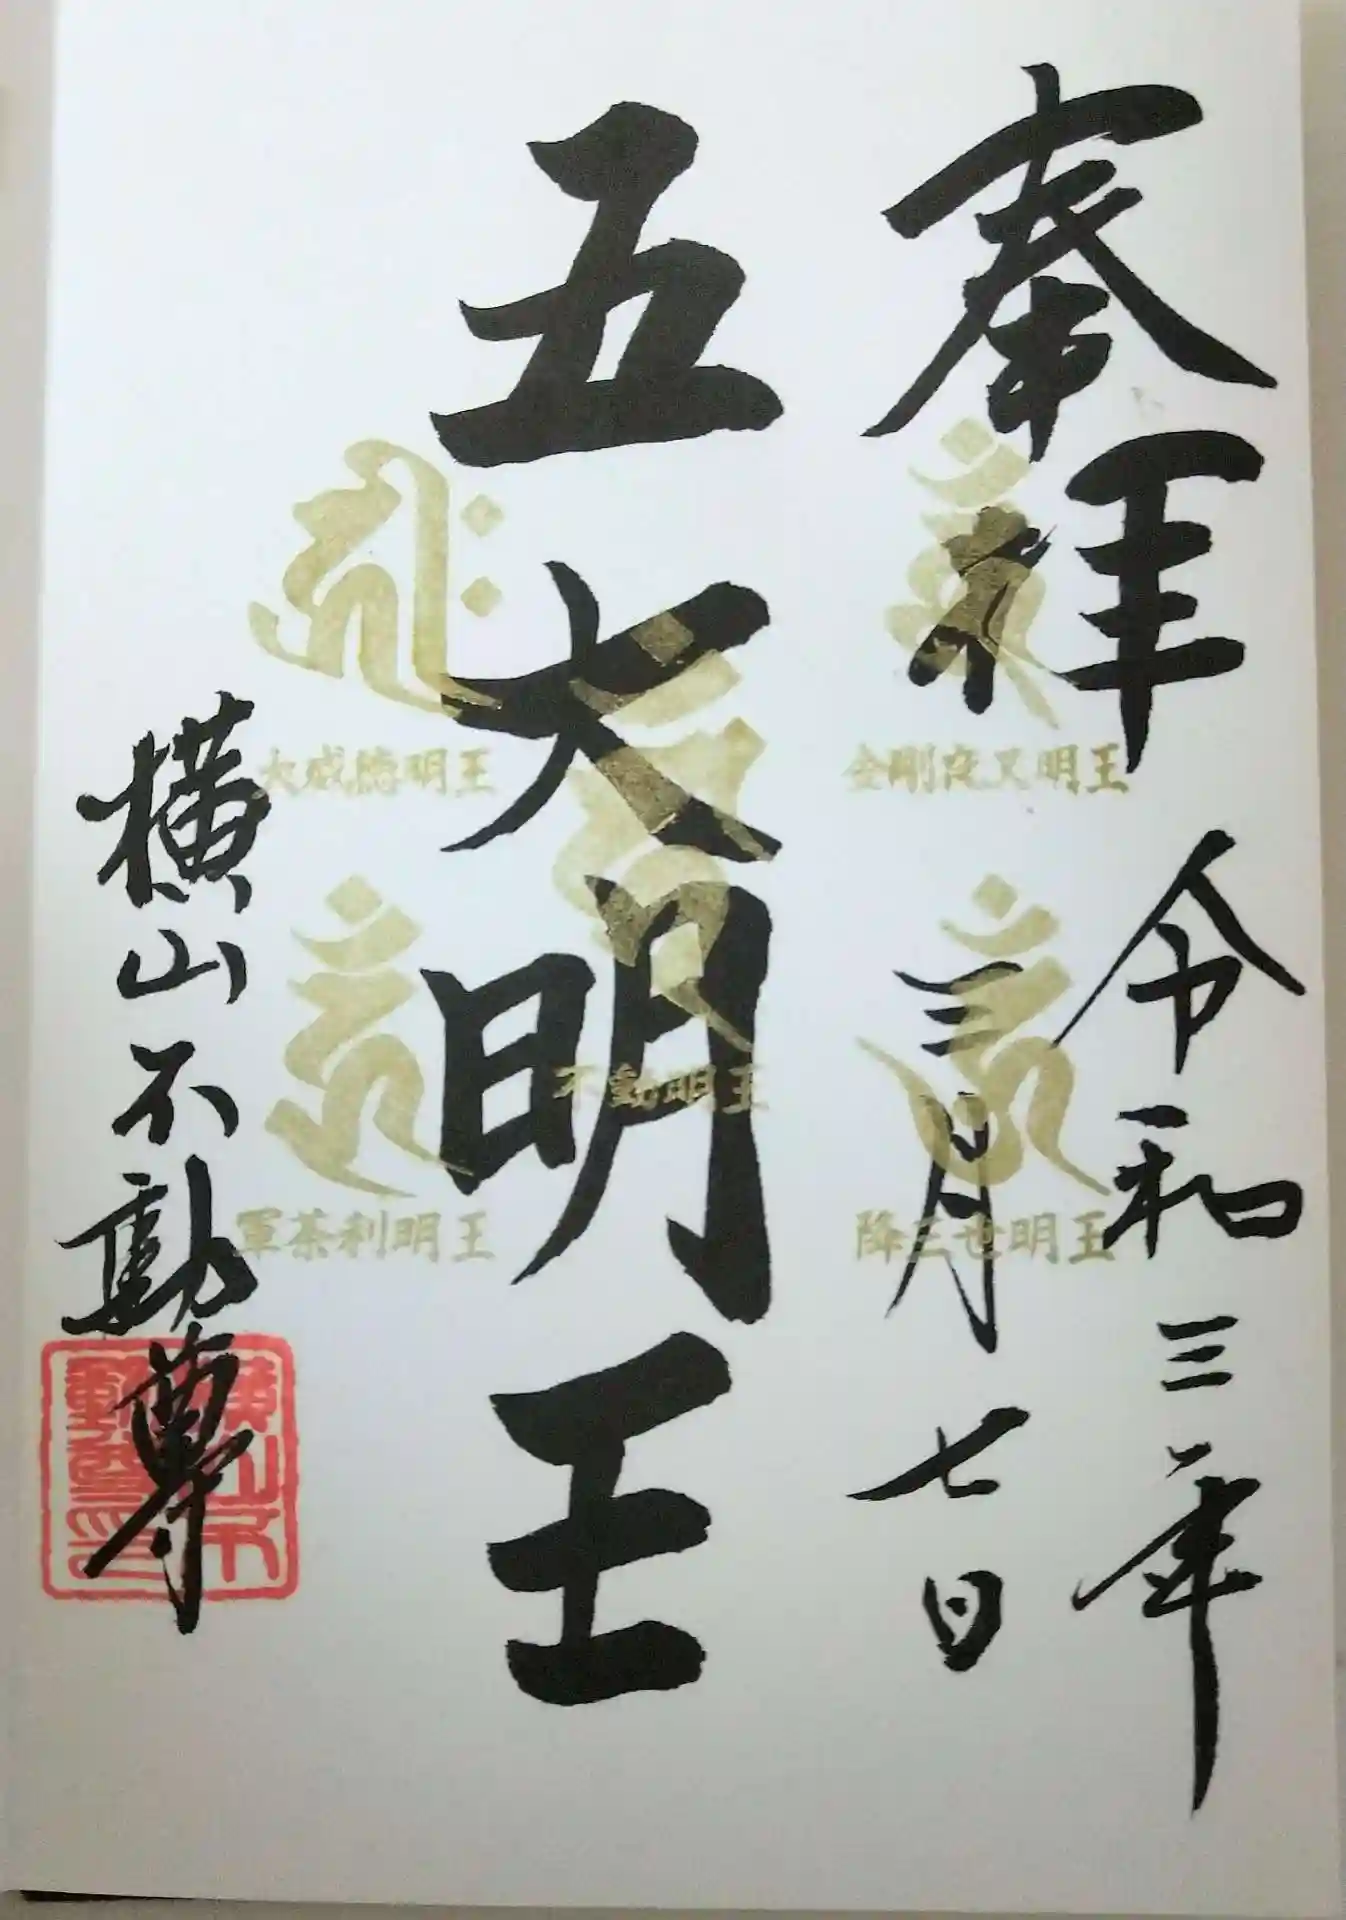 奉拝
令和三年
三月七日
五大明王
金剛夜叉明王
降三世明王
不動明王
大威徳明王
軍荼利明王
横山不動尊
横山不
動尊印